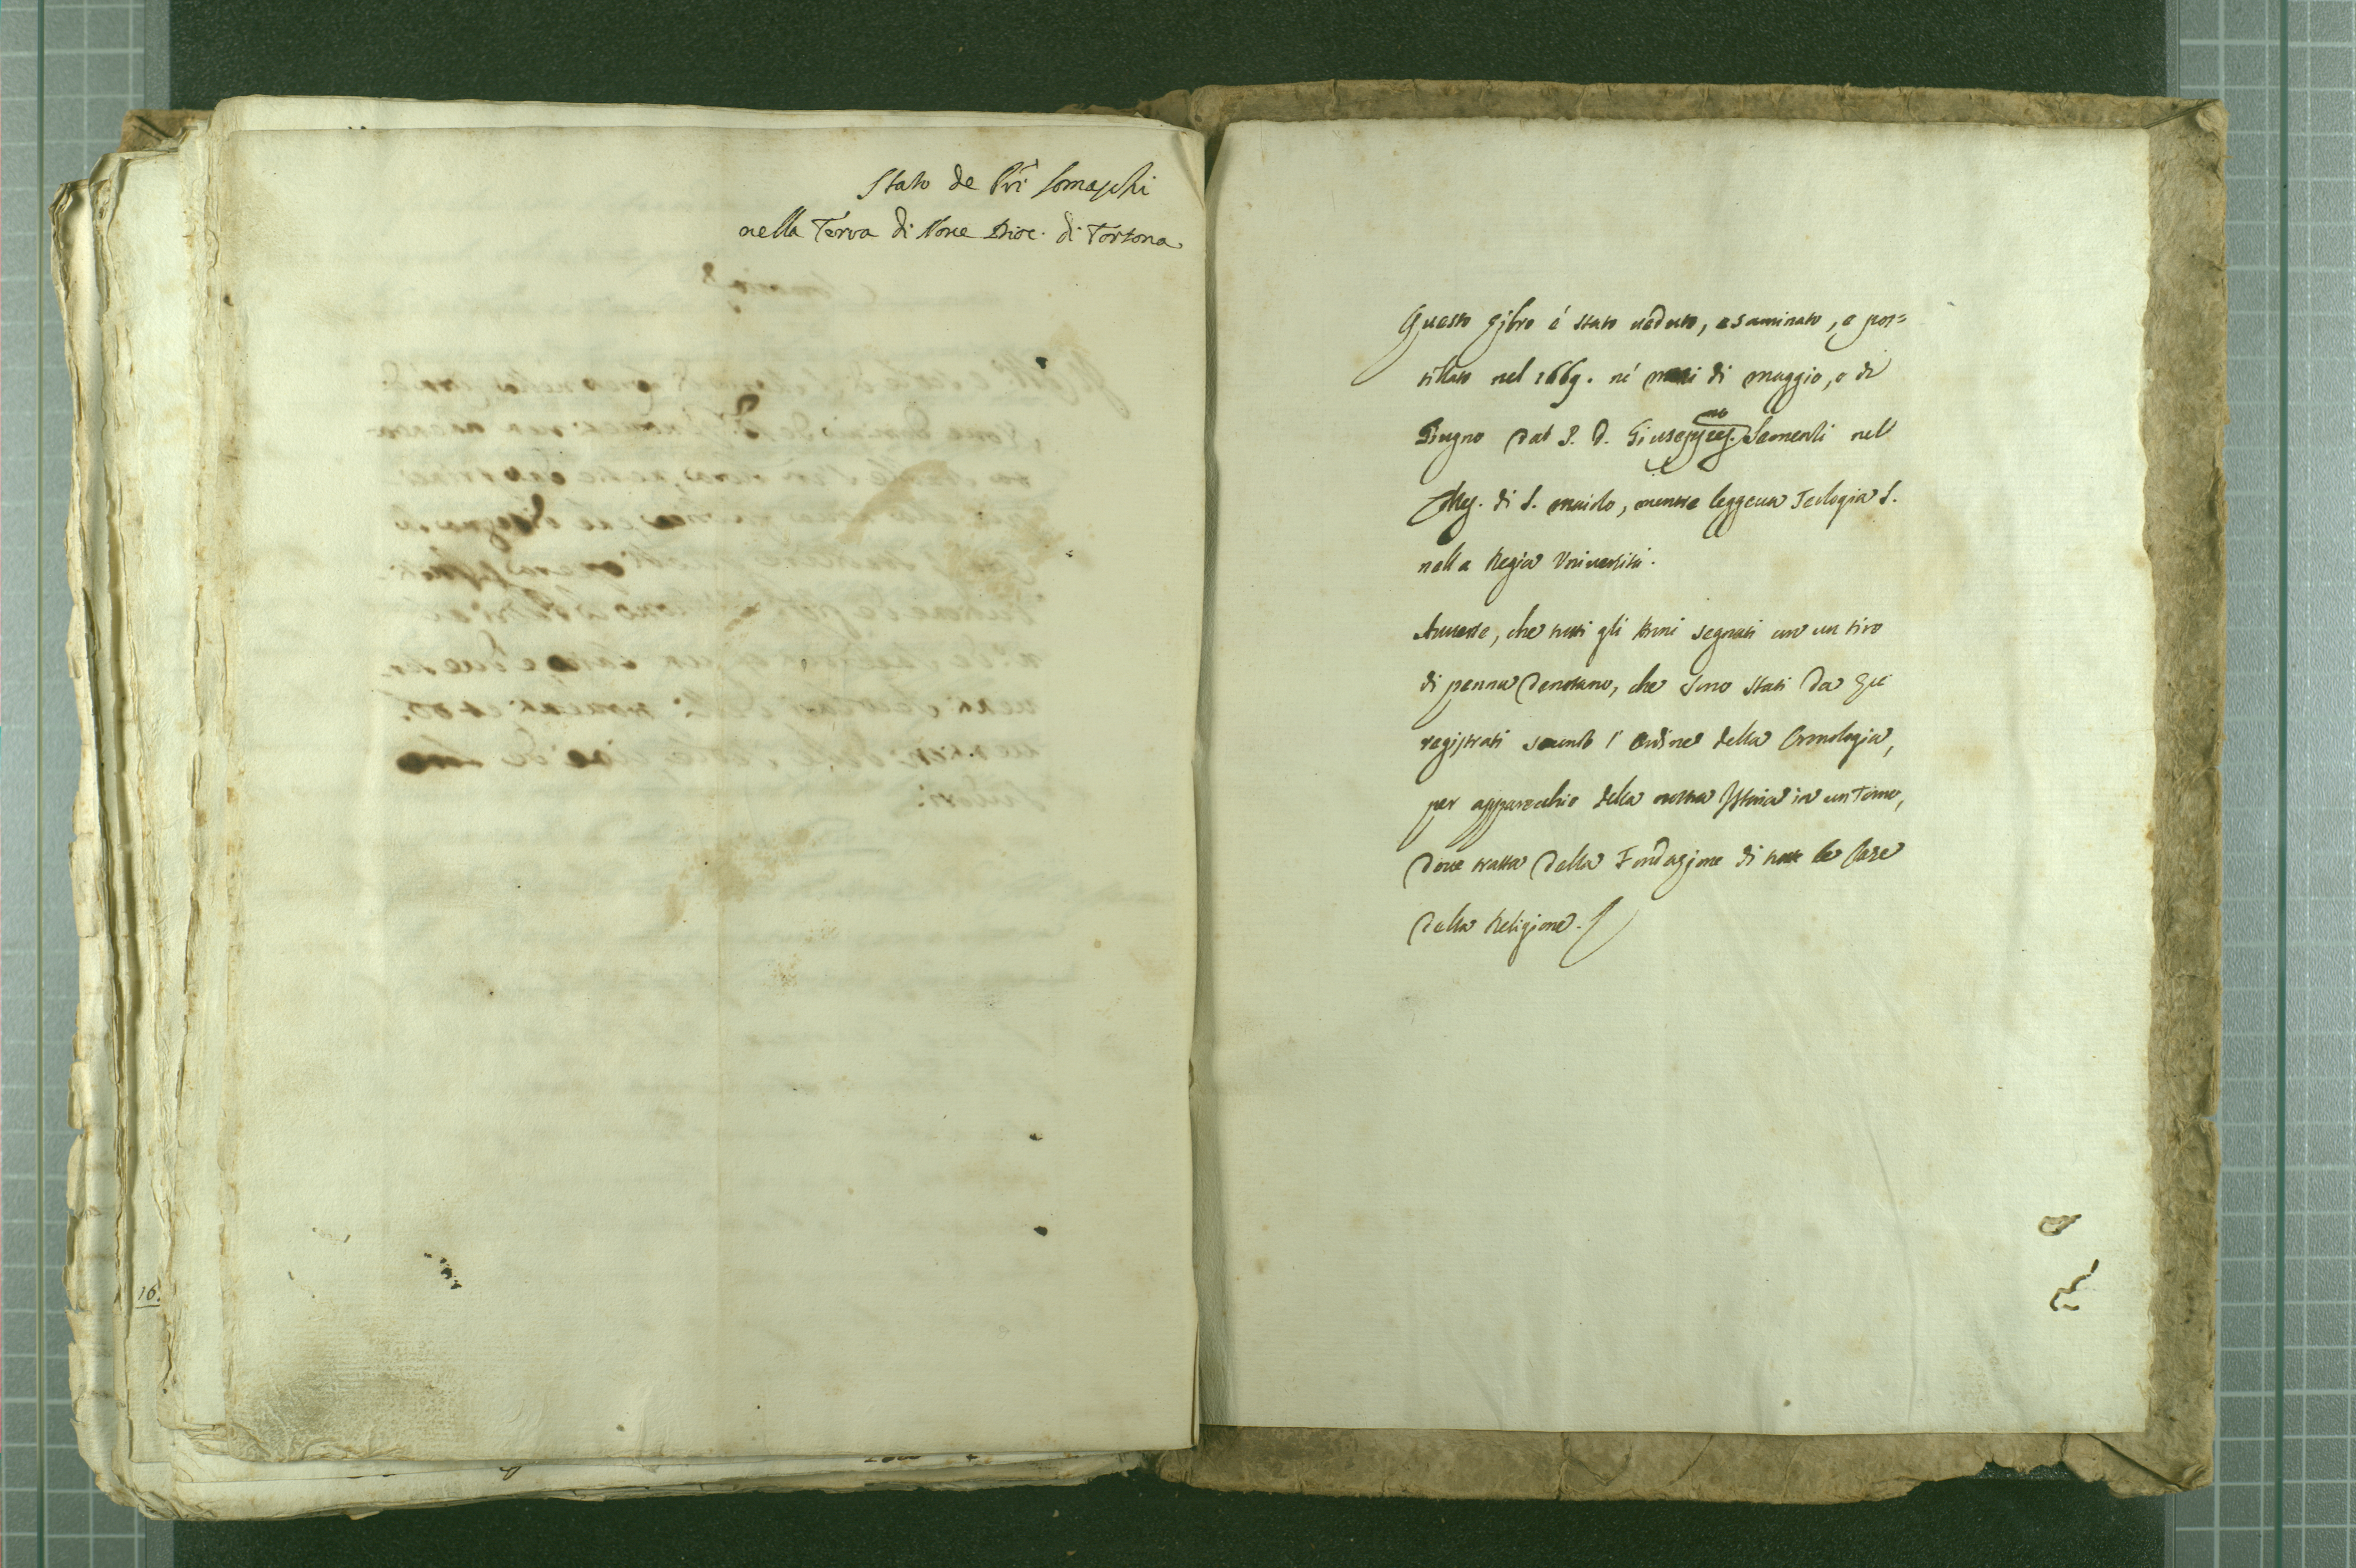 Stato de Pri Somaschi
nella Terra di Nove Dioc. di Tortona
16.
Questo Libro é stato ueduto, esaminato, e pos=
tillato nel 1669. né mesi di maggio, e di
Giugno dal P. D. Giuseppe Semenzi nel
Coleg. di S. maiolo, mentre leggeua Teologia S.
nella Regia Vniuersità.
Auuerte, che tutti gli Anni segnati con un tiro
di penna denotano, che sono stati da Lui
registrati secondo l'ordine della Cronologia,
per apparecchio della nostra Istoria in un Tomo,
doue tratta della Fondazione di tutte le Case
della Religione.